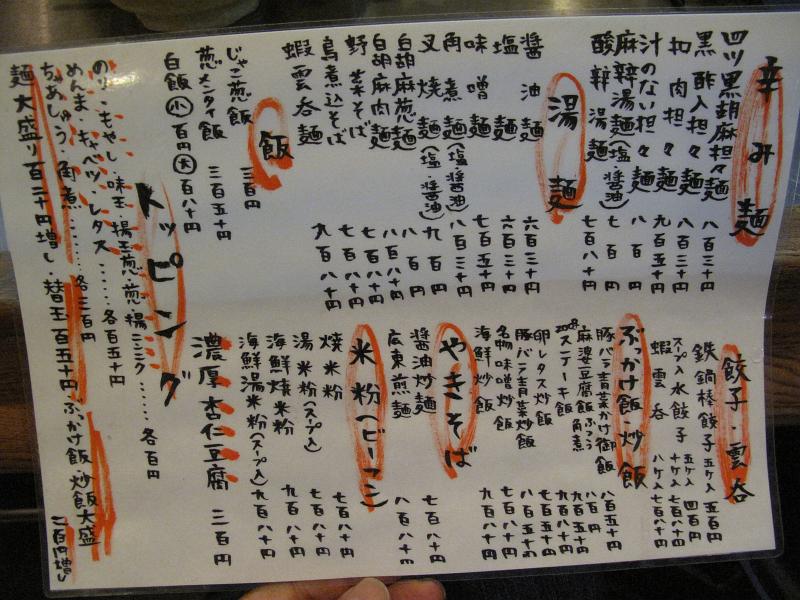 辛み麺
四ツ黒胡麻担々麺 八百三十円
黒酢入担々麺 八百三十円
扣肉担々麺 九百五十円
汁のない担々麺 八百円
麻辣湯麺(塩・醤油) 七百円
酸辣湯麺 七百八十円
湯麺
醤油麺 六百三十円
塩麺 六百三十円
味噌麺 七百五十円
角煮麺(塩・醤油) 八百三十円
叉焼麺(塩・醤油) 九百円
白胡麻葱麺 八百円
白胡麻肉麺 八百八十円
野菜そば 七百八十円
鳥煮込そば 七百八十円
蝦雲呑麺 九百八十円
飯
じゃこ葱飯 三百円
葱メンタイ飯 三百五十円
白飯 小 百円 大 百八十円
トッピング
のり・もやし・味玉・揚玉葱・葱・揚ニンニク……各百円
めんま・キャベツ・レタス……各百五十円
ちゃあしゅう・角煮……各三百円
麺大盛り百二十円増し・替玉百五十円 ぶっかけ飯・炒飯大盛 二百円増し
餃子・雲呑
鉄鍋棒餃子 五ケ入 五百円
スープ入水餃子 五ケ入 四百円
十ケ入 七百八十円
蝦雲呑 八ケ入 七百八十円
ぶっかけ飯・炒飯
豚バラ青菜かけ御飯 八百五十円
麻婆豆腐飯 八百円
ぶっかけ角煮 九百五十円
ステーキ飯 九百八十円
卵レタス炒飯 七百五十円
豚バラ青菜炒飯 八百五十円
名物味噌炒飯 七百八十円
海鮮炒飯 九百八十円
やきそば
醤油炒麺 七百八十円
広東煎麺 八百八十円
米粉(ビーフン)
焼米粉 七百八十円
湯米粉(スープ入) 七百八十円
海鮮焼米粉 九百八十円
海鮮湯米粉(スープ入) 九百八十円
濃厚杏仁豆腐 三百円